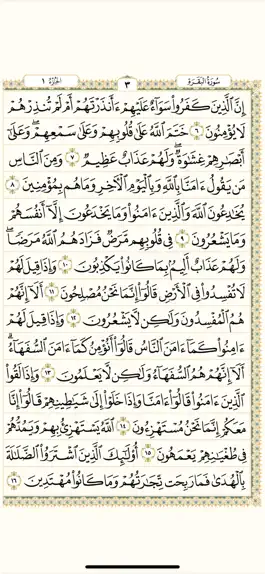 سُورَةُ البَقَرَةِ ٣ الجُزْءُ ١
إِنَّ الَّذِينَ كَفَرُوا سَوَاءٌ عَلَيْهِمْ ءَأَنذَرْتَهُمْ أَمْ لَمْ تُنذِرْهُمْ
لَا يُؤْمِنُونَ ٦ خَتَمَ اللَّهُ عَلَىٰ قُلُوبِهِمْ وَعَلَىٰ سَمْعِهِمْ ۖ وَعَلَىٰ
أَبْصَارِهِمْ غِشَاوَةٌ ۖ وَلَهُمْ عَذَابٌ عَظِيمٌ ٧ وَمِنَ النَّاسِ
مَن يَقُولُ ءَامَنَّا بِاللَّهِ وَبِالْيَوْمِ الْآخِرِ وَمَا هُم بِمُؤْمِنِينَ ٨
يُخَادِعُونَ اللَّهَ وَالَّذِينَ ءَامَنُوا وَمَا يَخْدَعُونَ إِلَّا أَنفُسَهُمْ
وَمَا يَشْعُرُونَ ٩ فِي قُلُوبِهِم مَّرَضٌ فَزَادَهُمُ اللَّهُ مَرَضًا ۖ
وَلَهُمْ عَذَابٌ أَلِيمٌ بِمَا كَانُوا يَكْذِبُونَ ١٠ وَإِذَا قِيلَ لَهُمْ
لَا تُفْسِدُوا فِي الْأَرْضِ قَالُوا إِنَّمَا نَحْنُ مُصْلِحُونَ ١١ أَلَا إِنَّهُمْ
هُمُ الْمُفْسِدُونَ وَلَٰكِن لَّا يَشْعُرُونَ ١٢ وَإِذَا قِيلَ لَهُمْ
ءَامِنُوا كَمَا ءَامَنَ النَّاسُ قَالُوا أَنُؤْمِنُ كَمَا ءَامَنَ السُّفَهَاءُ ۗ
أَلَا إِنَّهُمْ هُمُ السُّفَهَاءُ وَلَٰكِن لَّا يَعْلَمُونَ ١٣ وَإِذَا لَقُوا
الَّذِينَ ءَامَنُوا قَالُوا ءَامَنَّا وَإِذَا خَلَوْا إِلَىٰ شَيَاطِينِهِمْ قَالُوا إِنَّا
مَعَكُمْ إِنَّمَا نَحْنُ مُسْتَهْزِءُونَ ١٤ اللَّهُ يَسْتَهْزِئُ بِهِمْ وَيَمُدُّهُمْ
فِي طُغْيَانِهِمْ يَعْمَهُونَ ١٥ أُولَٰئِكَ الَّذِينَ اشْتَرَوُا الضَّلَالَةَ
بِالْهُدَىٰ فَمَا رَبِحَت تِّجَارَتُهُمْ وَمَا كَانُوا مُهْتَدِينَ ١٦